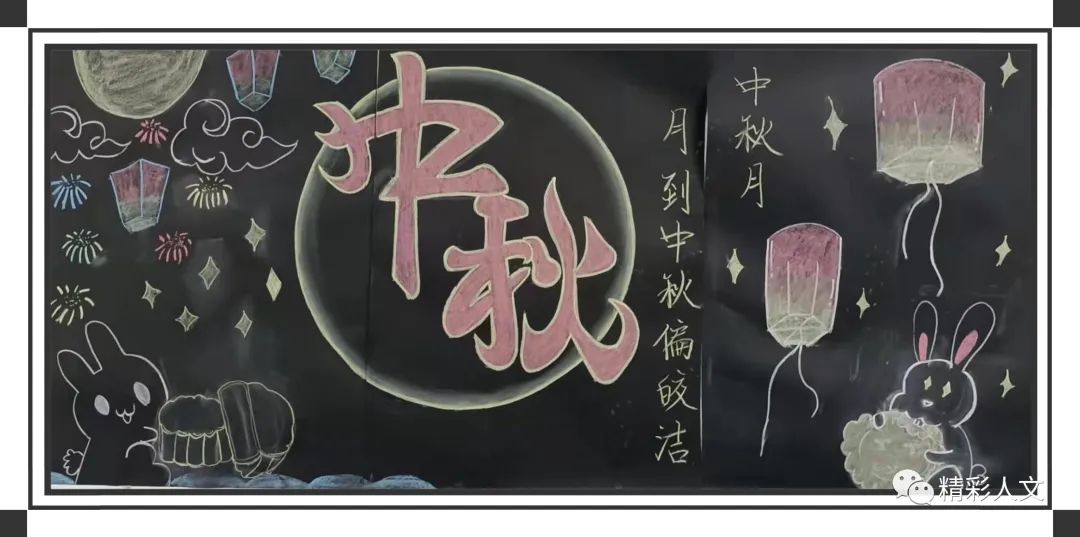 中秋
中秋月
月到中秋偏皎洁
精彩人文